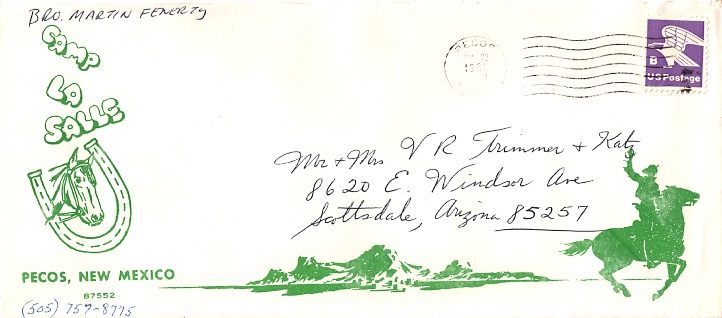 BRO. MARTIN FENERTY
CAMP
LA
SALLE
PECOS, NEW MEXICO
87552
(505) 757-8775
PECOS
B
US Postage
Mr + Mrs V R Trimmer + Katz
8620 E. Windsor Ave
Scottsdale, Arizona 85257